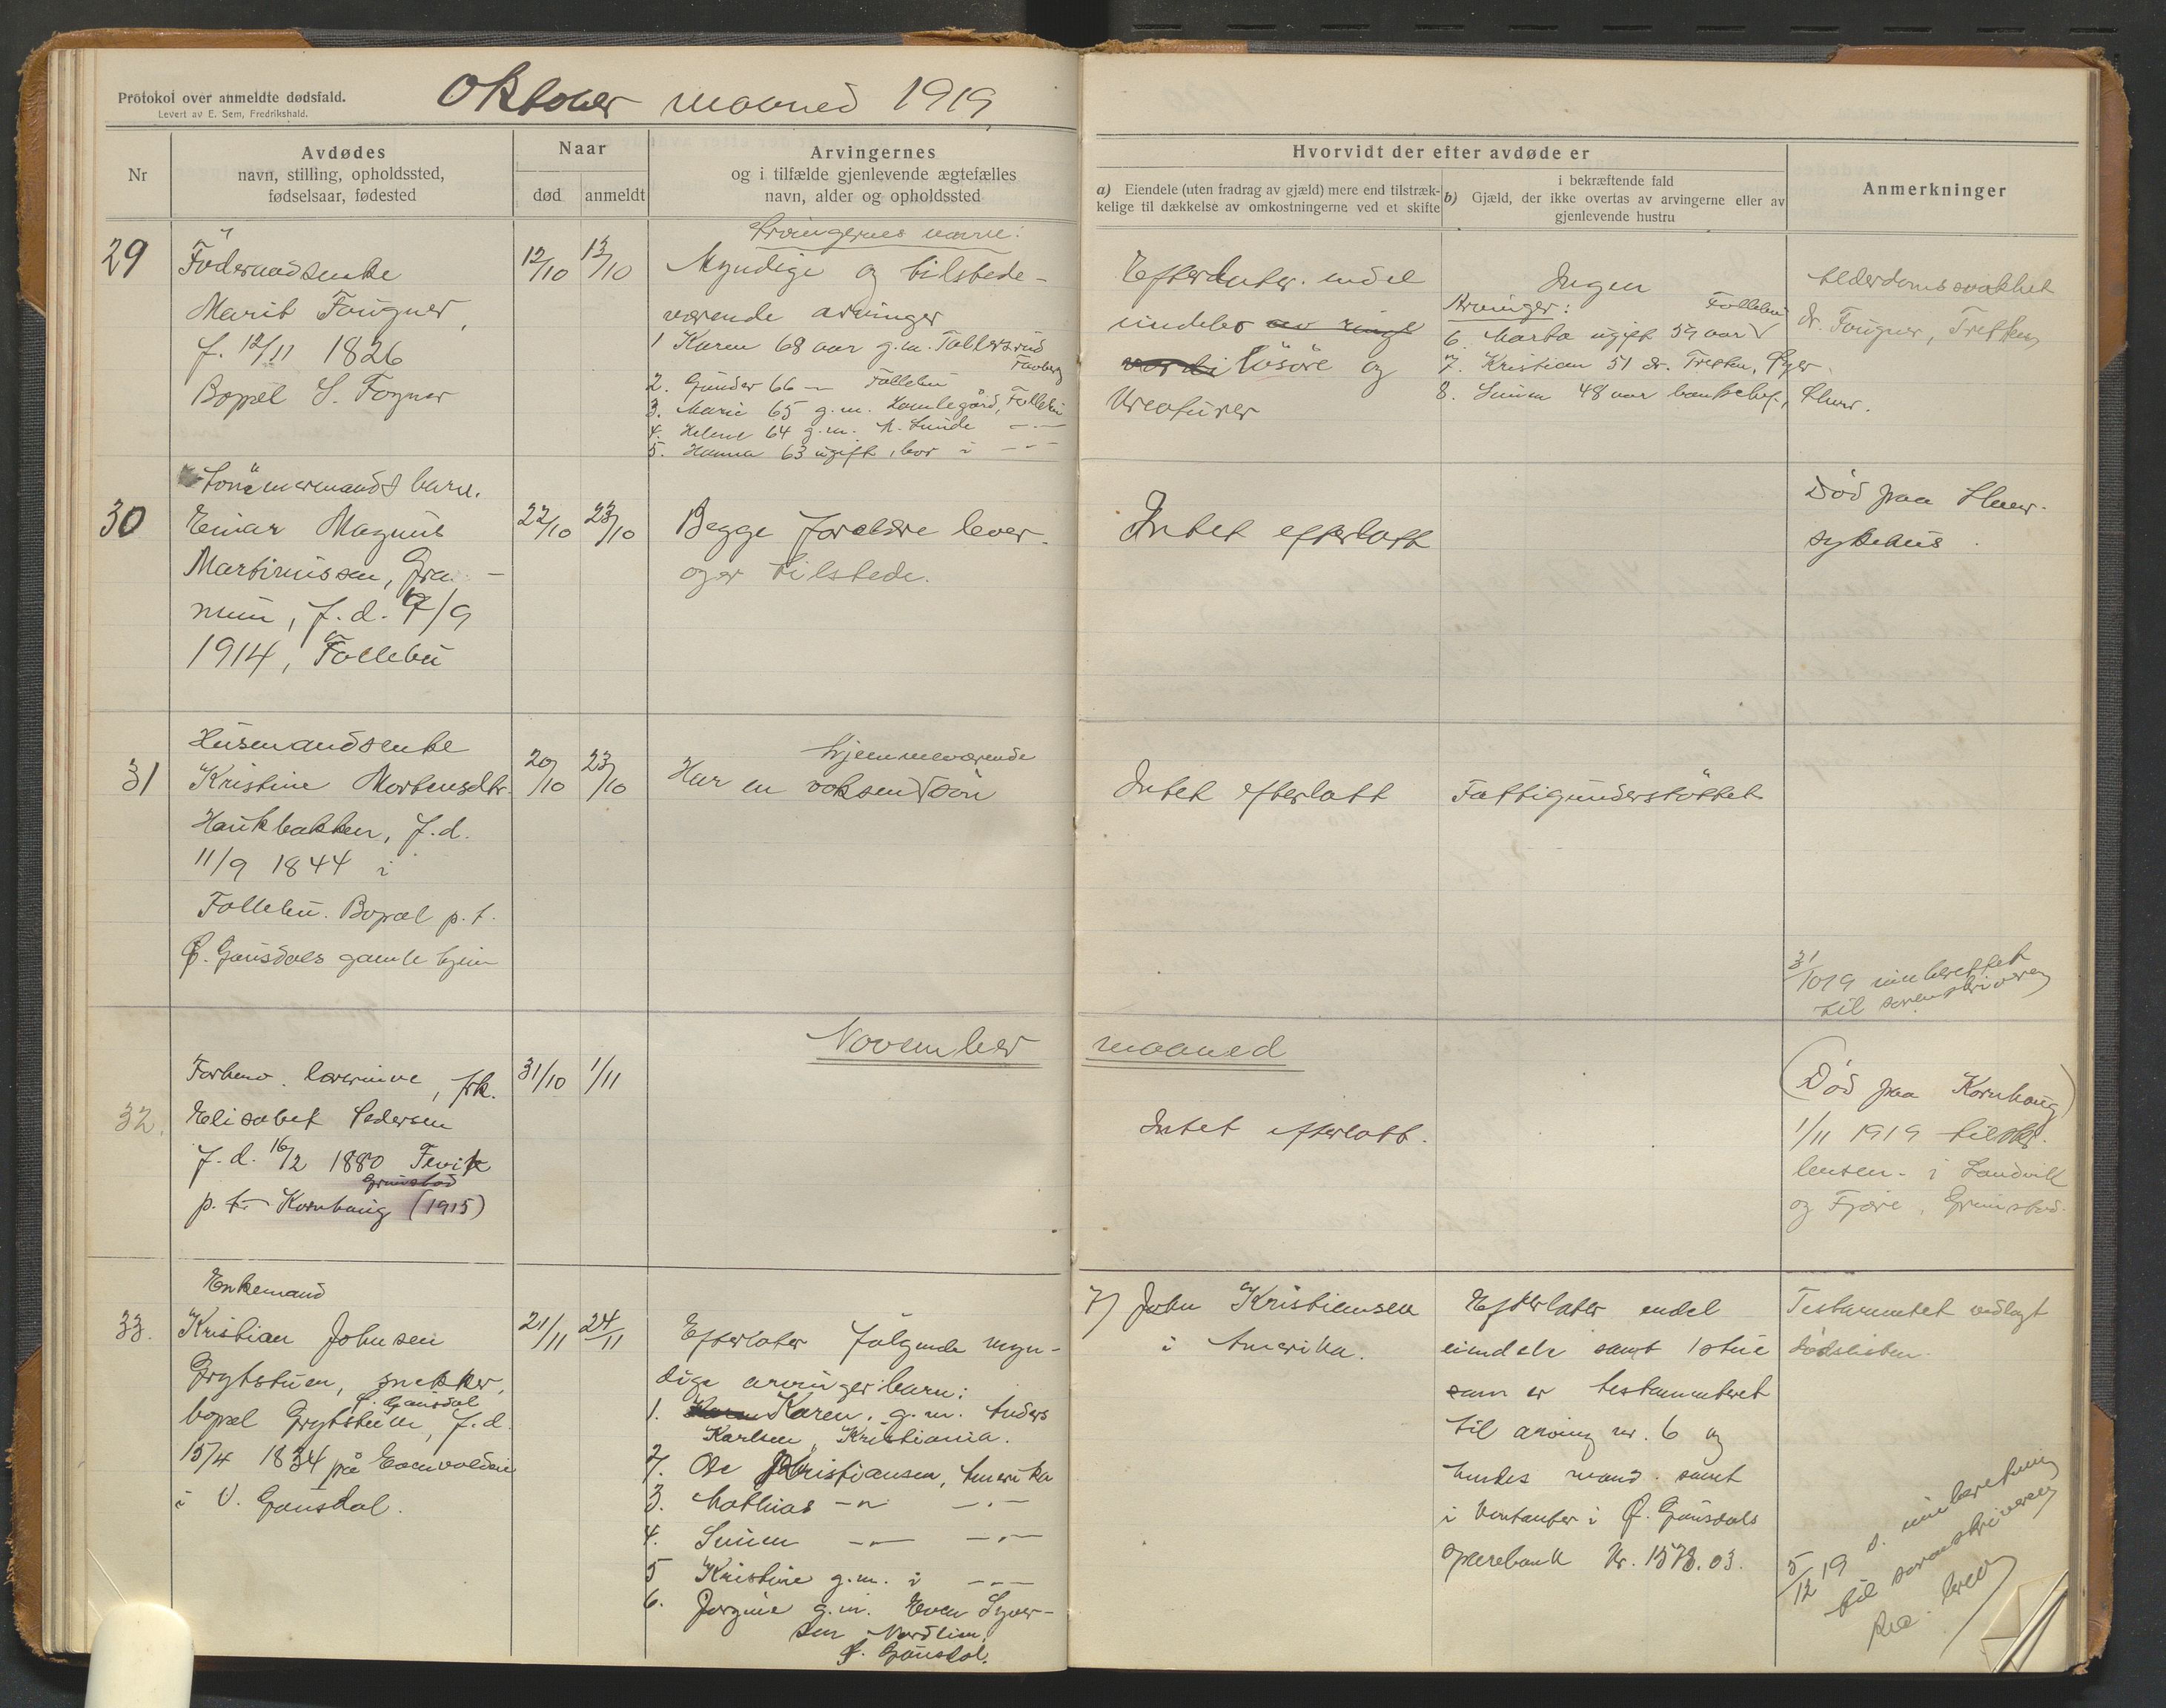 Protokol over anmeldte dødsfald.
Levert av E. Sem, Fredrikshald.
Oktober maaned 1919
Nr
Avdødes
navn, stilling, opholdssted,
fødselsaar, fødested
Naar
død
anmeldt
Arvingernes
og i tilfælde gjenlevende ægtefælles
navn, alder og opholdssted
Hvorvidt der efter avdøde er
a) Eiendele (uten fradrag av gjæld) mere end tilstræk-
kelige til dækkelse av omkostningerne ved et skifte
i bekræftende fald
b) Gjæld, der ikke overtas av arvingerne eller av
gjenlevende hustru
Anmerkninger
29
Föderaadsenke
Marit Fougner,
f. 12/11 1826
Bopæl S. Fogner
12/10
13/10
Arvingernes navne:
Myndige og tilstede-
værende arvinger
1 Karen 68 aar g.m. Tollersrud
Faaberg
2. Gunder 66 — Follebu
3. Marie 65 g.m. Hamlegård, Follebu
4. Helene 64 g.m. M. Linde — " —
5. Hanna 63 ugift, bor i — " —
Efterlater endel
eindeler av ringe
verdi lösöre og
kreaturer
Ingen
Arvinger:
6. Marta ugift 59 aar Follebu
7. Kristian 51 dr. Tretten, Öyer
8. Simen 48 aar banksjef, Elver.
Alderdomssvakhet
dr. Fougner, Tretten
30
Tömmermands barn.
Einar Magnus
Martinussen, Gra-
mum, f.d. 7/9
1914, Follebu
22/10
23/10
Begge foreldre lever
og er tilstede.
Intet efterlatt
Död paa Elver.
sykehus.
31
Husmandsenke
Kristine Mortensdtr.
Haukbakken, f.d.
11/9 1844 i
Follebu. Bopæl p.t.
Ø. Gausdals gamle hjem
20/10
23/10
Har en voksen hjemmeværende sön
Intet efterlatt
Fattigunderstöttet
31/10 19 innberettet
til sorenskriveren
November maaned
32.
Forhenv. lærerinne, frk.
Elisabet Pedersen
f.d. 16/2 1880 Fevik
Grimstad
p.t. Kornhaug (1915)
31/10
1/11
Intet efterlatt.
(Död paa Kornhaug)
1/11 1919 tilskr.
lensm. i Landvik
og Fjære, Grimstad.
33.
Enkemand
Kristian Johnsen
Grytstuen, snekker,
bopæl Grytstuen, Ø. Gausdal f.d.
15/4 1834 på Enevoldeie
i V. Gausdal.
21/11
24/11
Efterlater fölgende myn-
dige arvinger barn:
1. Karen Karen, g.m. Anders
Karlsen, Kristiania.
2. Ole Kristiansen, Amerika
3. Mathias — " — — " —
4. Simen — " — — " —
5 Kristine g.m. i — " —
6. Jorgine g.m. Even Syver-
sen Nordlien,
Ø. Gausdal.
7) John Kristiansen
i Amerika.
Efterlater endel
eiendele samt 1 stue
som er testamenteret
til arving nr. 6 og
hendes mand. samt
i kontanter i Ø. Gausdals
sparebank Kr. 1578.03.
Testamentet vedlagt
dödslisten.
5/12 19 s. innberetning
til sorenskriveren